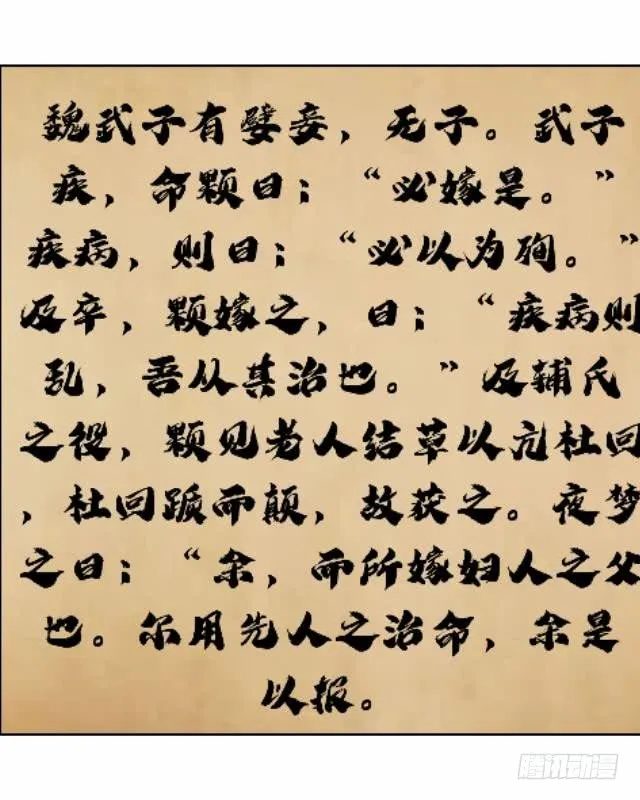 魏武子有嬖妾，无子。武子
疾，命颗曰：“必嫁是。”
疾病，则曰：“必以为殉。”
及卒，颗嫁之，曰：“疾病则
乱，吾从其治也。”及辅氏
之役，颗见老人结草以亢杜回
，杜回踬而颠，故获之。夜梦
之曰：“余，而所嫁妇人之父
也。尔用先人之治命，余是
以报。
腾讯动漫